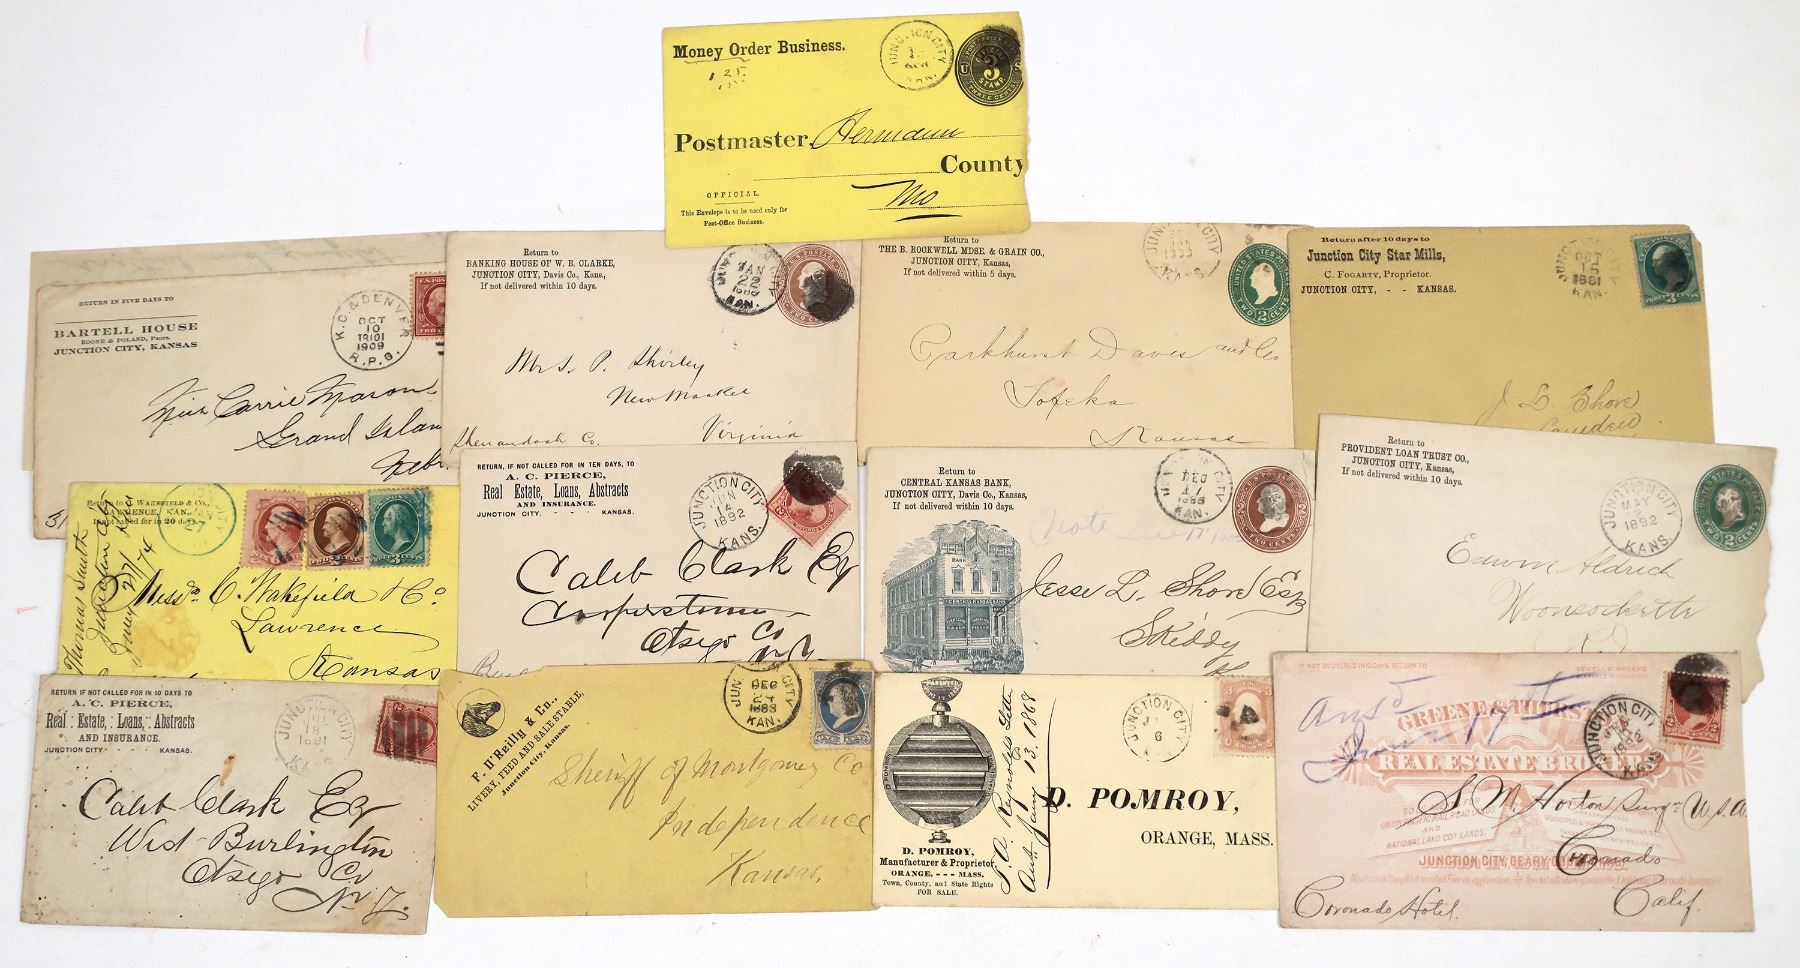 Money Order Business.
JUNCTION CITY
KAN.
U S
3
STAMP.
Postmaster, Hermann
County
Mo
OFFICIAL.
This Envelope is to be used only for
Post-Office Business.
RETURN IN FIVE DAYS TO
BARTELL HOUSE
BOONE & POLAND, Props.
JUNCTION CITY, KANSAS
K.C. & DENVER
OCT
10
TR101
1909
R.P.O.
Miss Carrie Mason
Grand Island
Nebr
Return to
BANKING HOUSE OF W. B. CLARKE,
JUNCTION CITY, Davis Co., Kans,
If not delivered within 10 days.
JAN
22
KAN.
Mrs. P. Shirley
New Market
Shenandoah Co. Virginia
Return to
THE B. ROCKWELL MDSE. & GRAIN CO.,
JUNCTION CITY, Kansas,
If not delivered within 5 days.
JUNCTION CITY
KANS.
UNITED STATES POSTAGE
TWO 2 CENTS
Parkhurst Davis and Co
Topeka
Kansas
Return after 10 days to
Junction City Star Mills,
C. FOGARTY, Proprietor.
JUNCTION CITY, - - KANSAS.
OCT
15
1881
KAN.
THREE 3 CENTS
J. L. Shore
Return to C. Wakefield & Co.,
LAWRENCE, KAN.,
If not called for in 20 days.
Thomas Smith
Junction City
Messrs C. Wakefield & Co
Lawrence
Kansas
RETURN, IF NOT CALLED FOR IN TEN DAYS, TO
A. C. PIERCE,
Real Estate, Loans, Abstracts
AND INSURANCE.
JUNCTION CITY. - - KANSAS.
JUNCTION CITY
JUN
14
1892
KANS.
Caleb Clark Esq
Cooperstown
Otsego Co
N.Y.
Return to
CENTRAL KANSAS BANK,
JUNCTION CITY, Davis Co., Kansas,
If not delivered within 10 days.
BANK
CENTRAL KANSAS BANK
DEC
17
KAN.
Jesse L. Shore Esq
Skiddy
Return to
PROVIDENT LOAN TRUST CO.,
JUNCTION CITY, Kansas,
If not delivered within 10 days.
JUNCTION CITY
MAY
2
1892
KANS.
TWO 2 CENTS
Edwin Aldrich
Woonsockett
R.I.
RETURN IF NOT CALLED FOR IN 10 DAYS TO
A. C. PIERCE,
Real Estate, Loans, Abstracts
AND INSURANCE.
JUNCTION CITY KANSAS.
JUNCTION CITY
JUL
18
1891
KANS
Caleb Clark Esq
West Burlington
Otsego Co
N.Y.
F. O'Reilly & Co.,
LIVERY, FEED AND SALE STABLE,
Junction City, Kansas.
JUNCTION CITY
DEC
27
1883
KAN.
Sheriff of Montgomery Co
Independence
Kansas.
PATENTED
D. POMROY,
Manufacturer & Proprietor
ORANGE, - - - MASS.
Town, County, and State Rights
FOR SALE.
S. A. Reynolds Letter
Ans. Jany 13. 1868
JUNCTION CITY
6
D. POMROY,
ORANGE, MASS.
IF NOT DELIVERED IN 10 DAYS RETURN TO
GREENE & THURS
REAL ESTATE BROKERS
UNION PACIFIC RAILROAD LAND
AND
NATIONAL LAND CO'S LANDS.
JUNCTION CITY, GEARY COUNTY, KANS.
JUNCTION CITY
KANS
S. W. Horton Surgn U.S.A.
Coronado
Coronado Hotel. Calif.